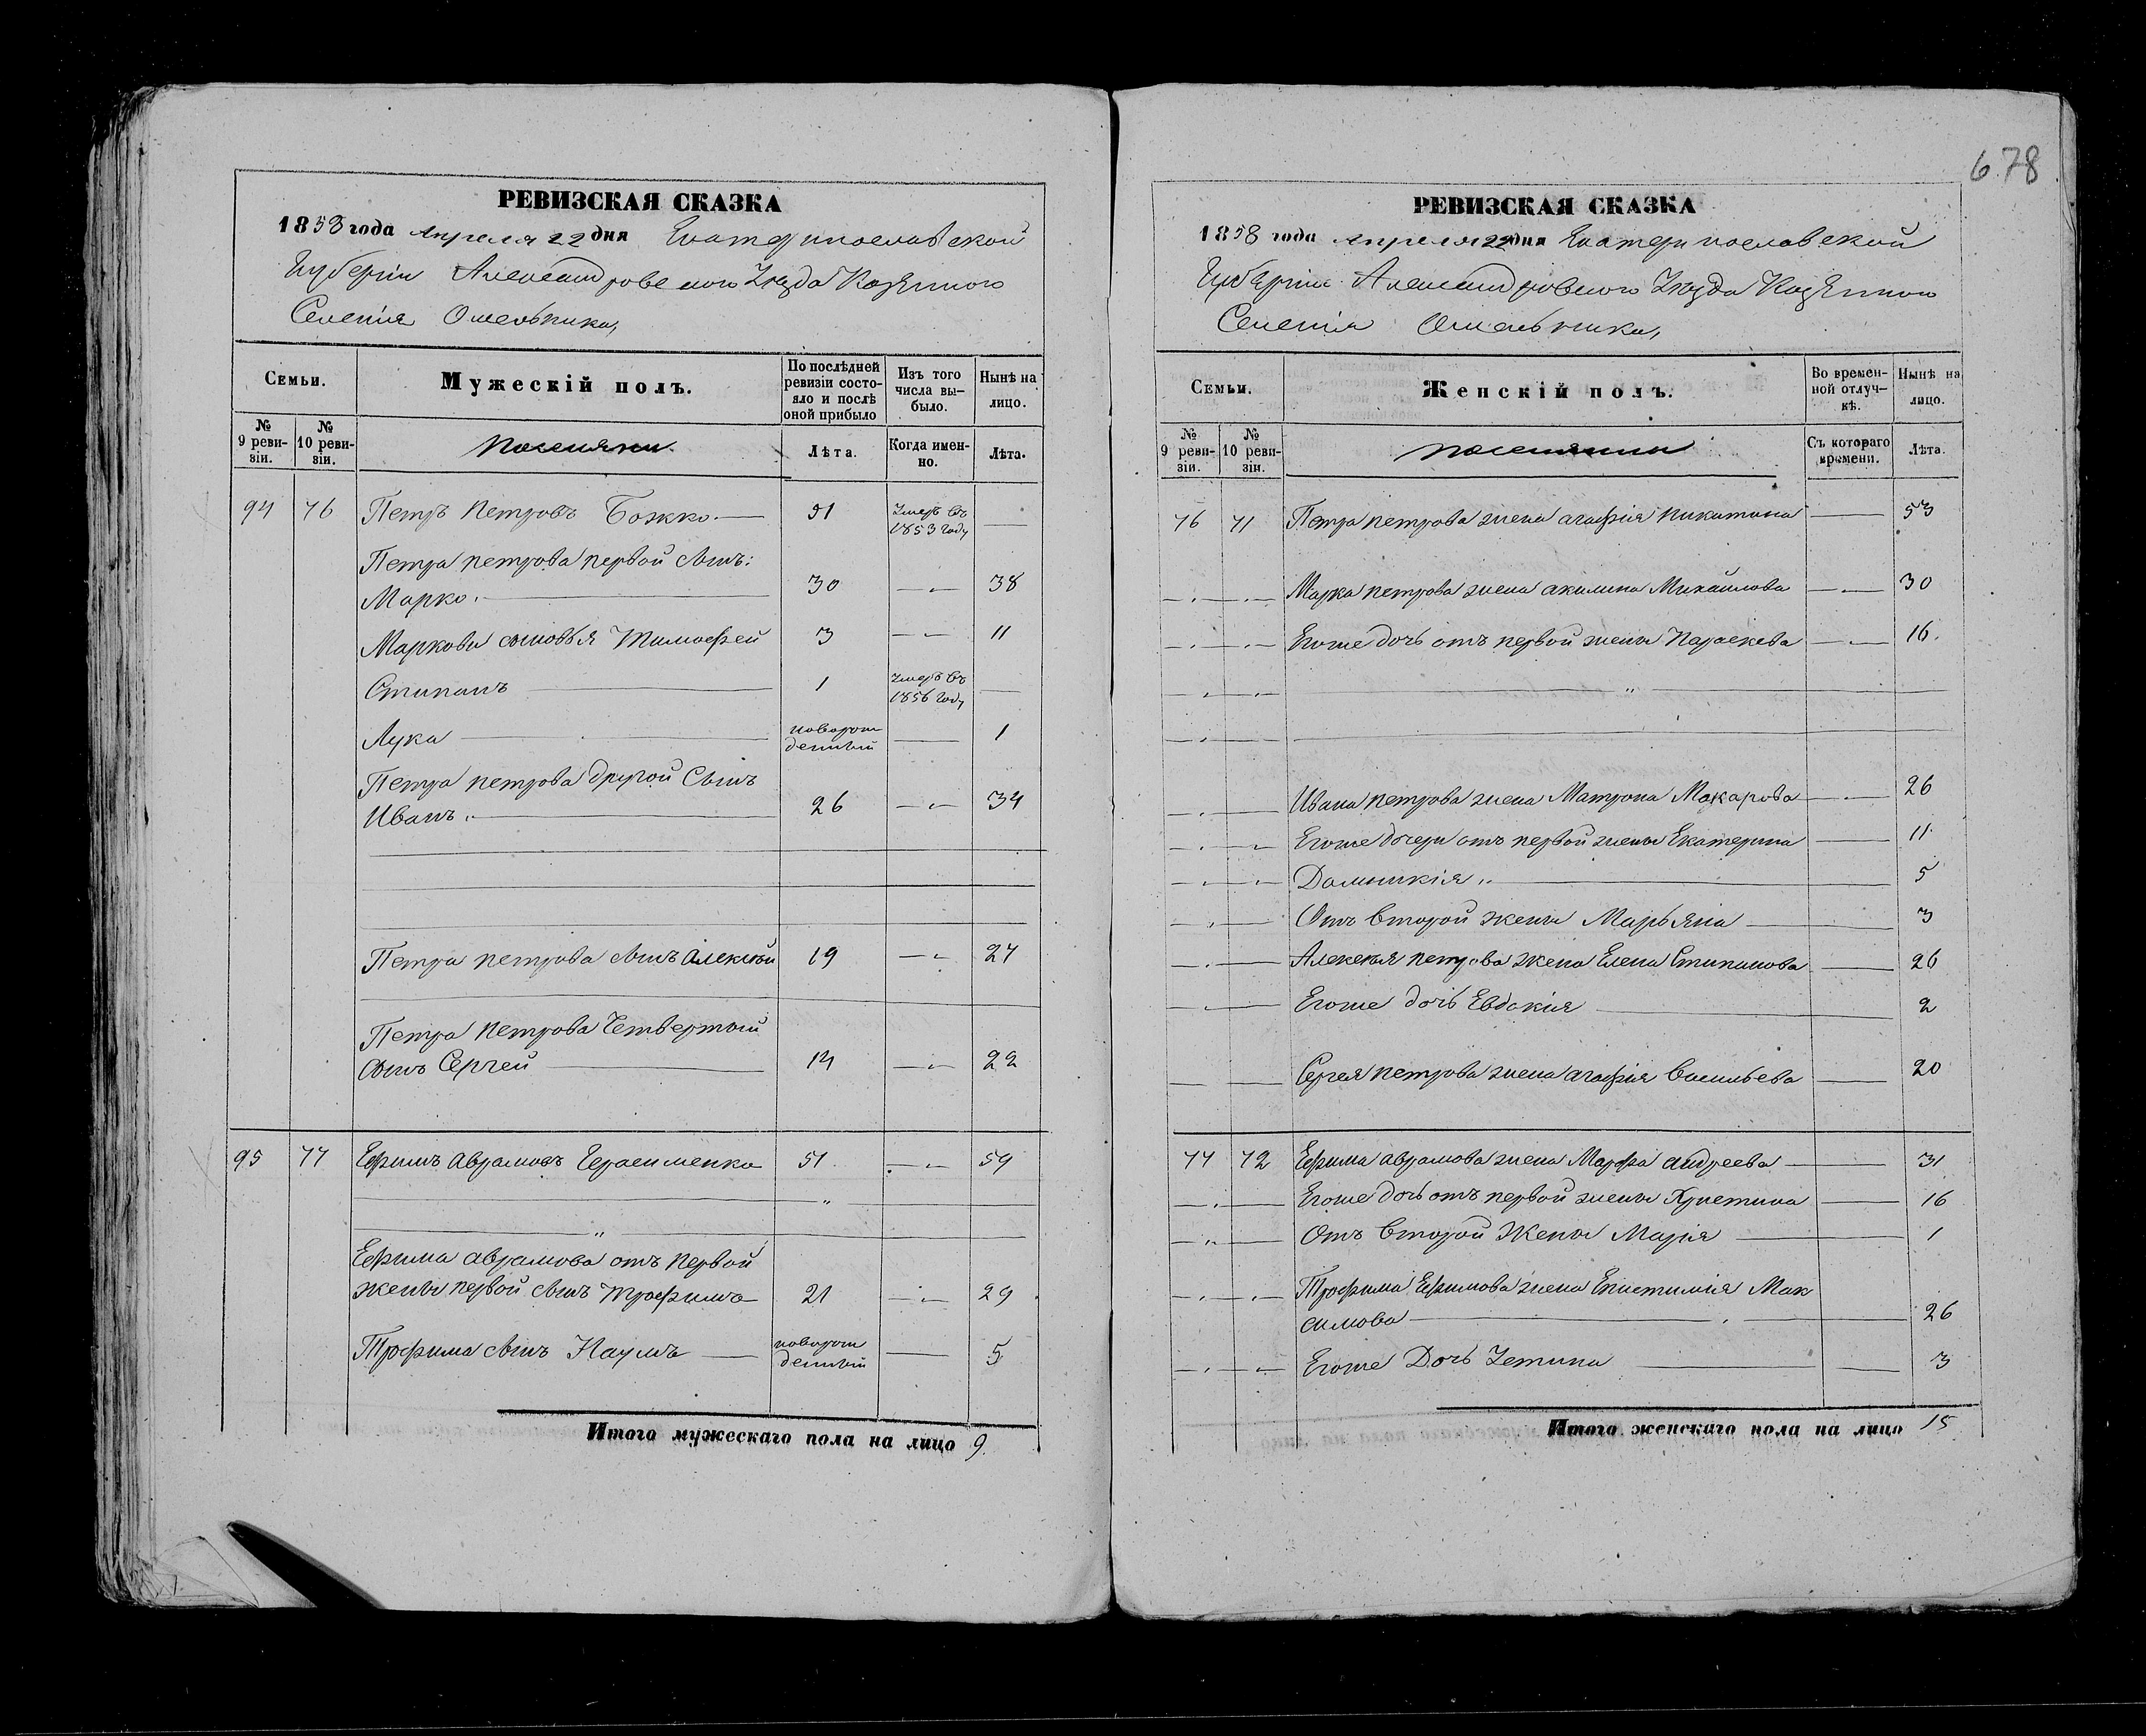 678
РЕВИЗСКАЯ СКАЗКА
1858 года Апреля 22 дня Екатеринославской
Губерніи Александровскаго Уезда Казенного
Селенія Омельника,
Семьи.
Мужескій полъ.
По послѣдней ревизіи состояло и послѣ оной прибыло
Изъ того числа выбыло.
Нынѣ на лицо.
№ 9 ревизіи.
№ 10 ревизіи.
Поселяне
Лѣта.
Когда именно.
Лѣта.
94 76 Петръ Петровъ Божко 51 Умеръ въ 1853 году
Петра петрова первой сынъ:
Марко. 30 38
Маркови сыновья Тимофей 3 11
Стипанъ 1 Умеръ въ 1856 году
Лука новорожденный 1
Петра петрова другой Сынъ
Иванъ 26 34
Петра петрова сынъ Алексѣй 19 27
Петра Петрова Четвертый
сынъ Сергей 14 22
95 77 Ефимъ Аврамовъ Герасименко 51 59
Ефима Аврамова отъ первой
жены первой сынъ Трофимъ 21 29
Трофима сынъ Наумъ новорожденный 5
Итого мужескаго пола на лицо 9.
РЕВИЗСКАЯ СКАЗКА
1858 года Апреля 22 дня Екатеринославской
Губерніи Александровского Уезда Казенного
Селенія Омельника,
Семьи.
Женскій полъ.
Во временной отлучкѣ.
Нынѣ на лицо.
№ 9 ревизіи.
№ 10 ревизіи.
Съ котораго времени.
Лѣта.
76 71 Петра петрова жена агафія Никитина 53
Марка петрова жена акилина Михайлова 30
Егоже дочь отъ первой жены Параскева 16.
Ивана петрова жена Матрона Макарова 26
Егоже дочери отъ первой жены Екатерина 11
Домникія 5
Отъ второй жены Марьяна 3
Алексѣя петрова жена Елена Стипанова 26
Егоже дочь Евдокия 2
Сергея петрова жена агафия Васильева 20
77 72 Ефима аврамова жена Марфа андреева 31
Егоже дочь отъ первой жены Христина 16
Отъ второй Жены Мария 1
Трофима Ефимова жена Епистимия Мак
симова 26
Егоже Дочь Устина 3
Итого женскаго пола на лицо 15